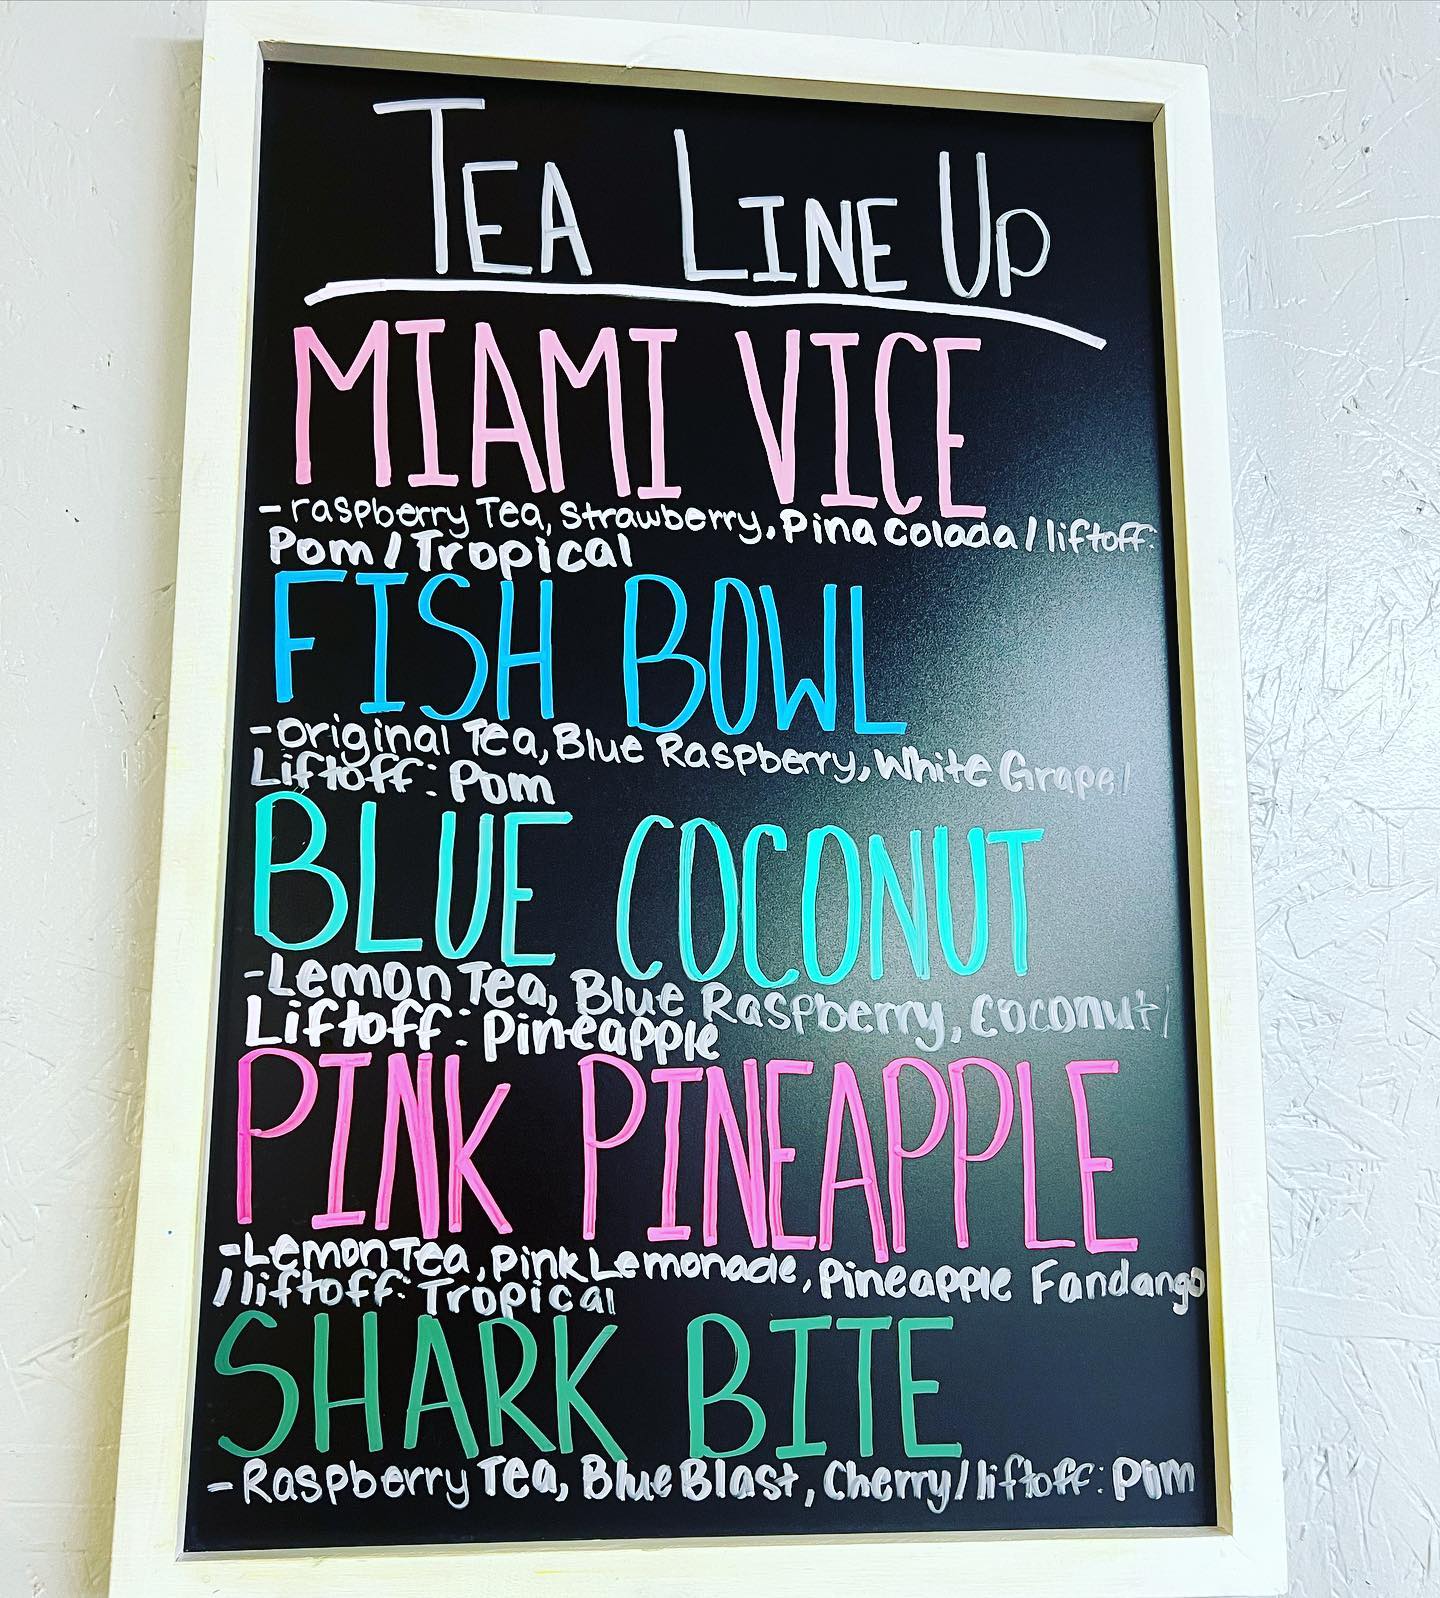 TEA LINE UP
MIAMI VICE
- raspberry Tea, Strawberry, Pina Colada / liftoff:
Pom / Tropical
FISH BOWL
- Original Tea, Blue Raspberry, White Grape /
Liftoff: Pom
BLUE COCONUT
- Lemon Tea, Blue Raspberry, Coconut /
Liftoff: Pineapple
PINK PINEAPPLE
- Lemon Tea, Pink Lemonade, Pineapple Fandango
/ liftoff: Tropical
SHARK BITE
- Raspberry Tea, Blue Blast, Cherry / liftoff: Pom